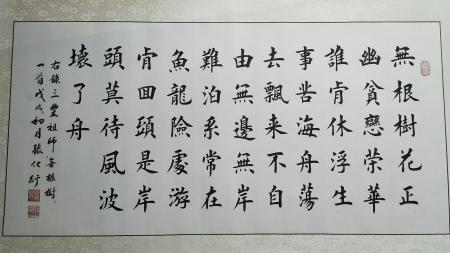 無根樹花正
幽貧戀榮華
誰肯休浮生
事苦海舟蕩
去飄来不自
由無邊無岸
難泊系常在
魚龍險處游
肯回頭是岸
頭莫待風波
壞了舟
右錄三豐祖師無根樹
一首戊戌初月張